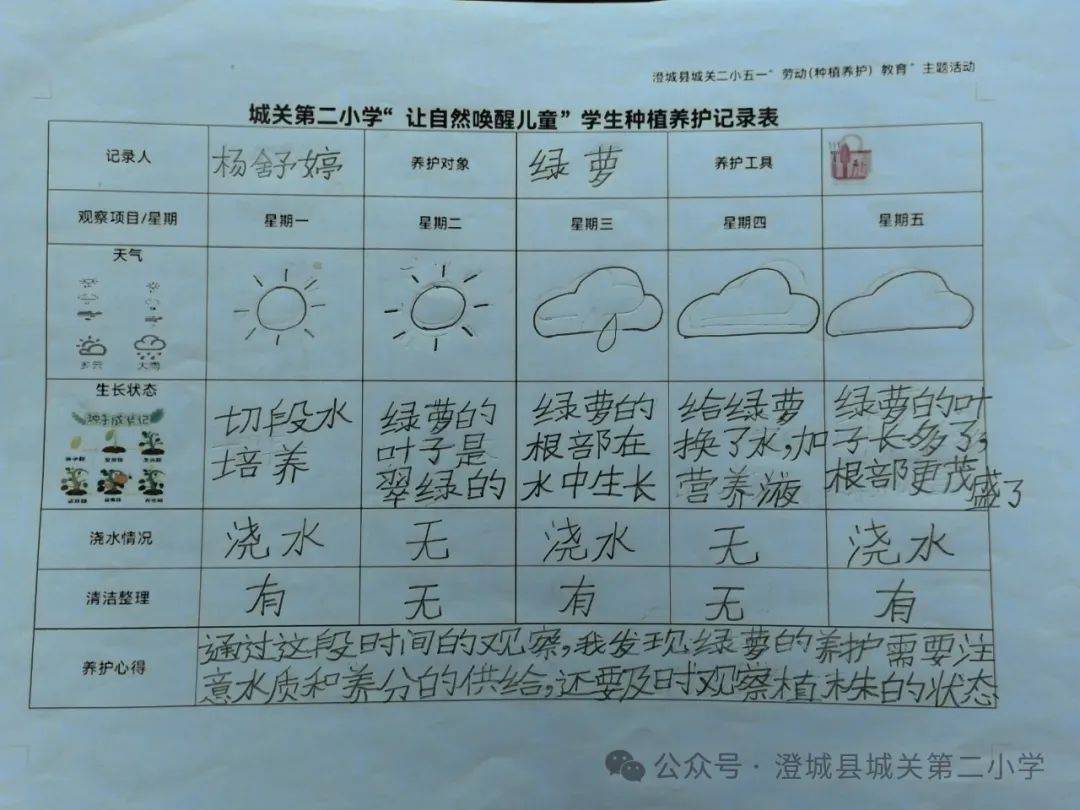 澄城县城关二小五一“劳动(种植养护) 教育”主题活动
城关第二小学“让自然唤醒儿童”学生种植养护记录表
记录人 杨舒婷 养护对象 绿萝 养护工具
观察项目/星期 星期一 星期二 星期三 星期四 星期五
天气
多云 大雨
生长状态
种子成长记
切段水
培养
绿萝的
叶子是
翠绿的
绿萝的
根部在
水中生长
给绿萝
换了水,加
营养液
绿萝的叶
子长多了,
根部更茂
盛了
浇水情况 浇水 无 浇水 无 浇水
清洁整理 有 无 有 无 有
养护心得
通过这段时间的观察,我发现绿萝的养护需要注
意水质和养分的供给,还要及时观察植株的状态
公众号·澄城县城关第二小学